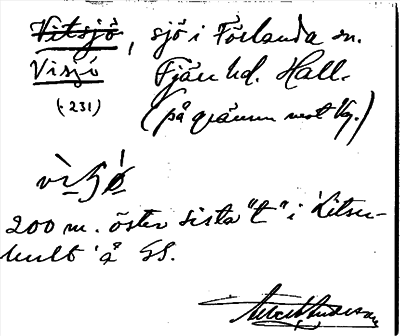 Vitsjö, sjö i Förlanda sn.
Visjö Fjäre hd. Hall.
(·231) (på gränsen mot Vg.)
200 m. öster sista "t" i Kitsu-
hult å GS.